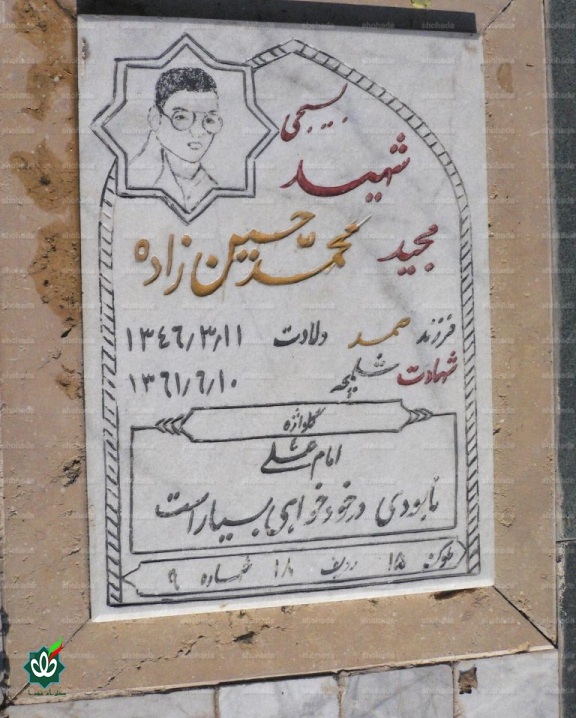 بسیجی
شهید
مجید
محمدحسین زاده
فرزند صمد ولادت ۱۳۴۶/۳/۱۱
شهادت شلمچه ۱۳۶۱/۶/۱۰
گلواژه
امام علی
نابودی در خودخواهی بسیار است
بلوک ۱۵ ردیف ۱۸ شماره ۹